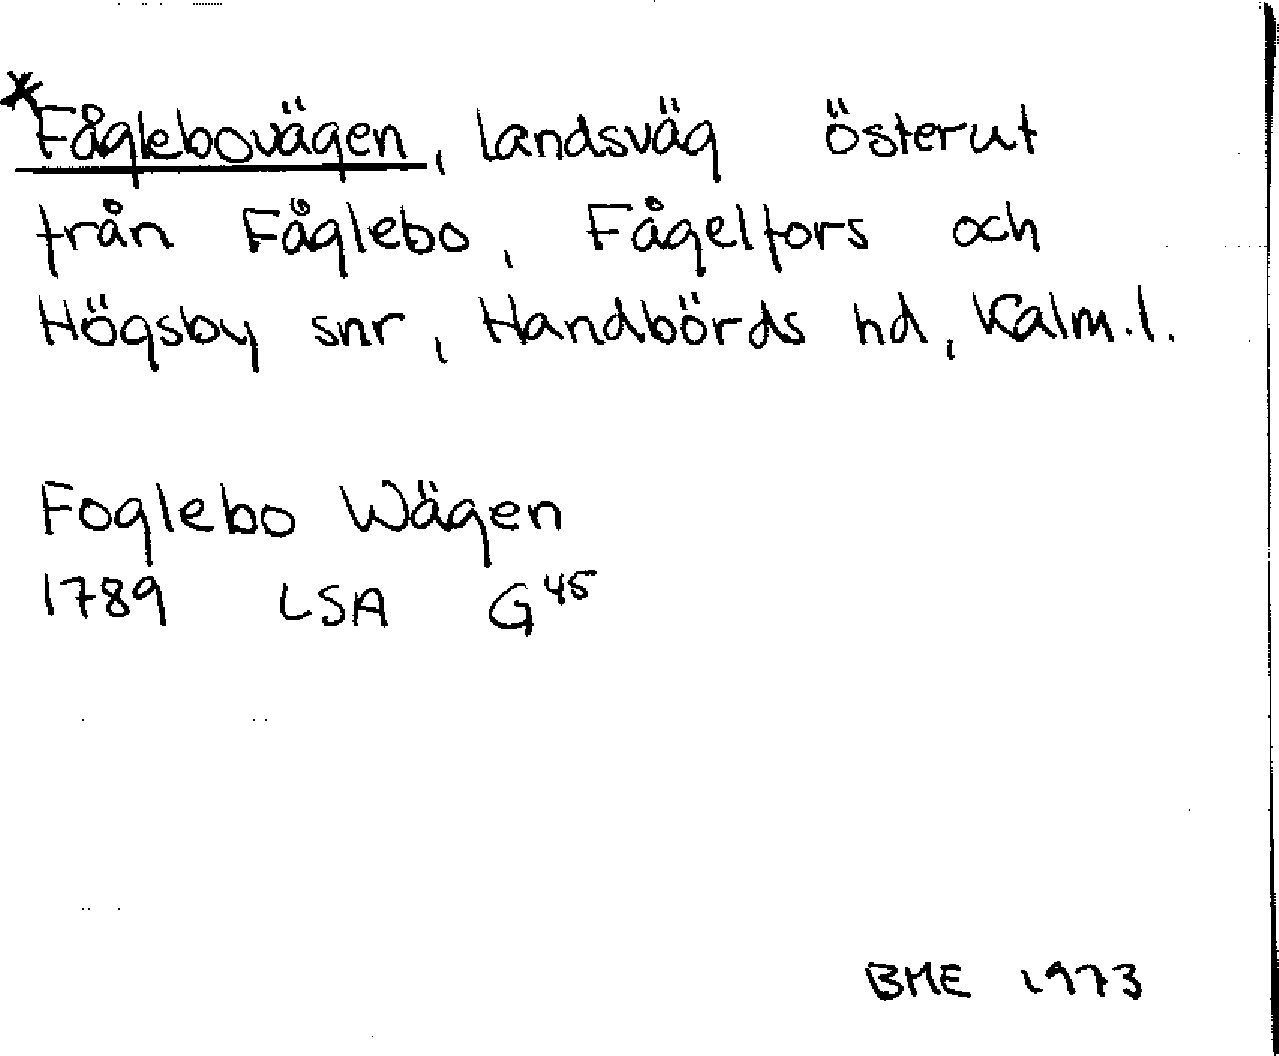 *Fåglebovägen, landsväg österut
från Fåglebo, Fågelfors och
Högsby snr, Handbörds hd, Kalm.l.
Foglebo Wägen
1789 LSA G45
BME 1973